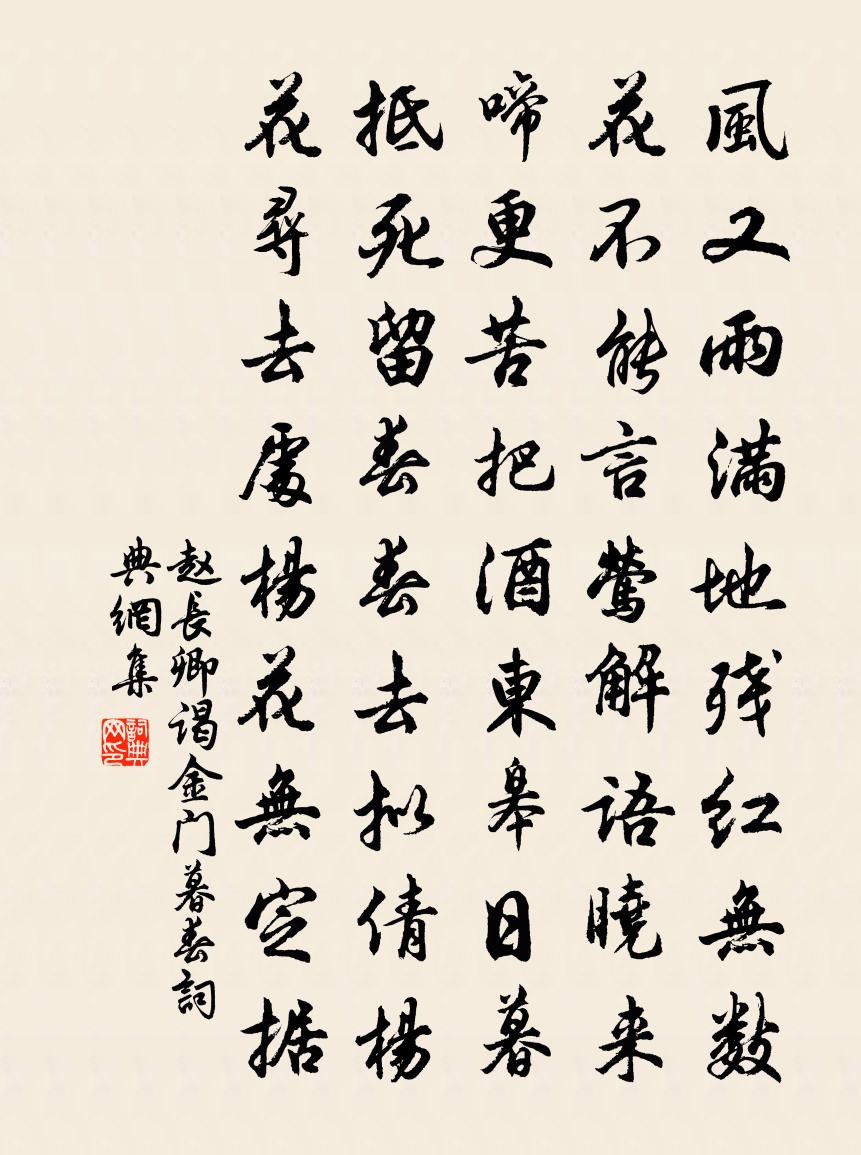 風又雨滿地残红無數
花不能言鶯解語曉来
啼更苦把酒東皋日暮
抵死留春春去拟倩楊
花尋去處楊花無定据
赵長卿謁金门暮春詞
典網集
詞典网印